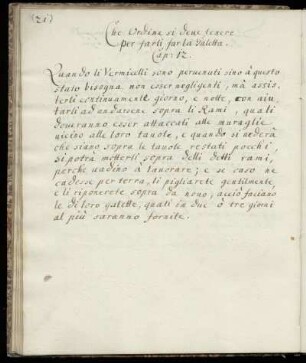 (21)
Che Ordine si deve tenere
per farli far la Galetta.
Cap: 12.
Quando li Vermicelli sono pervenuti sino à questo
stato bisogna non esser negligenti, mà assis,
terli continuamente giorno, e notte, con aiu,
tarli ad andarsene sopra li Rami, quali
doveranno esser attaccati alle muraglie
vicino alle loro tavole, e quando si vederà
che siano sopra le tavole restati pocchi,
si potra metterli sopra delli detti rami,
perche vadino à lavorare; e se caso ne
cadesse per terra, li pigliarete gentilmente,
e li riponerete sopra da novo, acciò faciano
le di loro galette, quali in due ò tre giorni
al più saranno fornite.